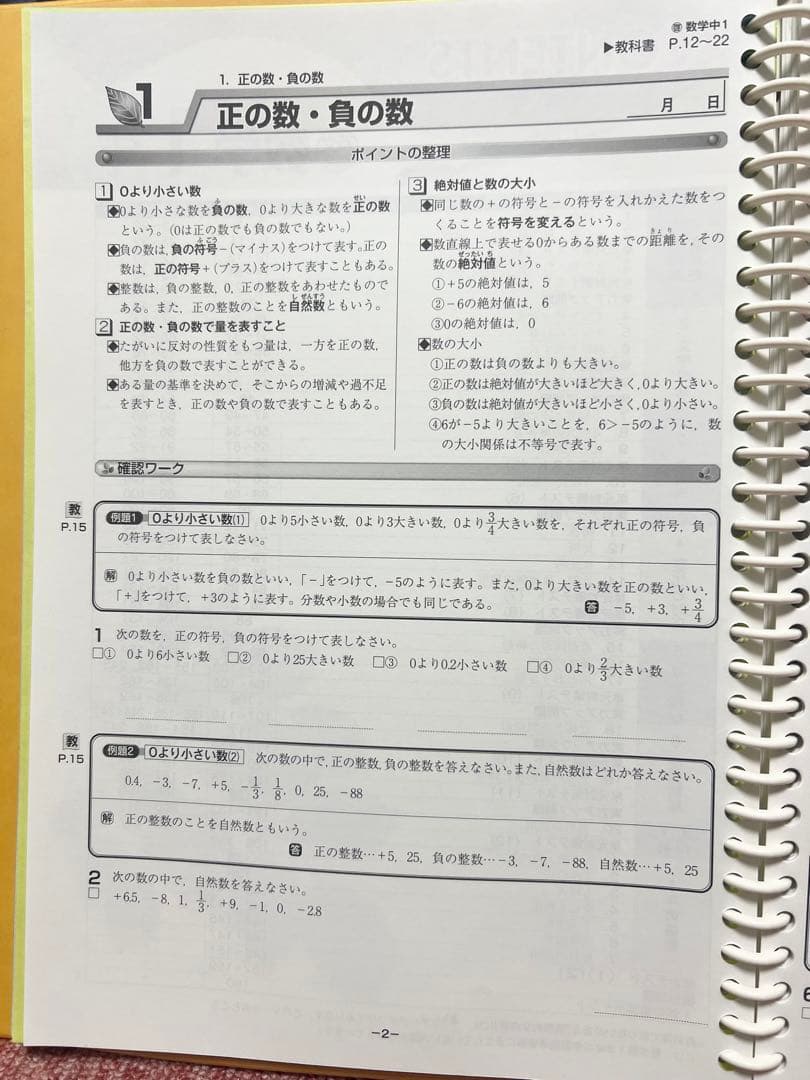 数学中1
▶教科書 P.12〜22
1
1. 正の数・負の数
正の数・負の数
月 日
ポイントの整理
1 0より小さい数
◆0より小さな数を負の数，0より大きな数を正の数
という。(0は正の数でも負の数でもない。)
◆負の数は，負の符号−(マイナス)をつけて表す。正の
数は，正の符号+(プラス)をつけて表すこともある。
◆整数は，負の整数，0，正の整数をあわせたもので
ある。また，正の整数のことを自然数ともいう。
2 正の数・負の数で量を表すこと
◆たがいに反対の性質をもつ量は，一方を正の数，
他方を負の数で表すことができる。
◆ある量の基準を決めて，そこからの増減や過不足
を表すとき，正の数や負の数で表すこともある。
3 絶対値と数の大小
◆同じ数の+の符号と−の符号を入れかえた数をつ
くることを符号を変えるという。
◆数直線上で表せる0からある数までの距離を，その
数の絶対値という。
①+5の絶対値は，5
②−6の絶対値は，6
③0の絶対値は，0
◆数の大小
①正の数は負の数よりも大きい。
②正の数は絶対値が大きいほど大きく，0より大きい。
③負の数は絶対値が大きいほど小さく，0より小さい。
④6が−5より大きいことを，6>−5のように，数
の大小関係は不等号で表す。
確認ワーク
教
P.15
例題1 0より小さい数(1) 0より5小さい数，0より3大きい数，0より3/4大きい数を，それぞれ正の符号，負
の符号をつけて表しなさい。
解 0より小さい数を負の数といい，「−」をつけて，−5のように表す。また，0より大きい数を正の数といい，
「+」をつけて，+3のように表す。分数や小数の場合でも同じである。 答 −5，+3，+3/4
1 次の数を，正の符号，負の符号をつけて表しなさい。
□① 0より6小さい数 □② 0より25大きい数 □③ 0より0.2小さい数 □④ 0より2/3大きい数
教
P.15
例題2 0より小さい数(2) 次の数の中で，正の整数，負の整数を答えなさい。また，自然数はどれか答えなさい。
0.4，−3，−7，+5，−1/3，1/8，0，25，−88
解 正の整数のことを自然数ともいう。
答 正の整数…+5，25，負の整数…−3，−7，−88，自然数…+5，25
2 次の数の中で，自然数を答えなさい。
□ +6.5，−8，1，1/3，+9，−1，0，−2.8
−2−